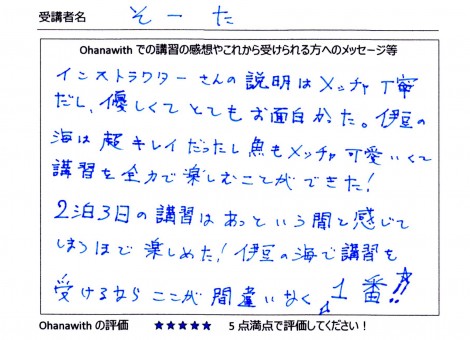 受講者名 そーた
Ohanawith での講習の感想やこれから受けられる方へのメッセージ等
インストラクターさんの説明はメッチャ丁寧
だし、優しくてとてもお面白かた。伊豆の
海は超キレイだったし魚もメッチャ可愛いくて
講習を全力で楽しむことができた!
2泊3日の講習はあっという間と感じて
しまうほどで楽しめた!伊豆の海で講習を
受けるならここが間違いなく1番!!
Ohanawith の評価 ★★★★★ 5 点満点で評価してください!